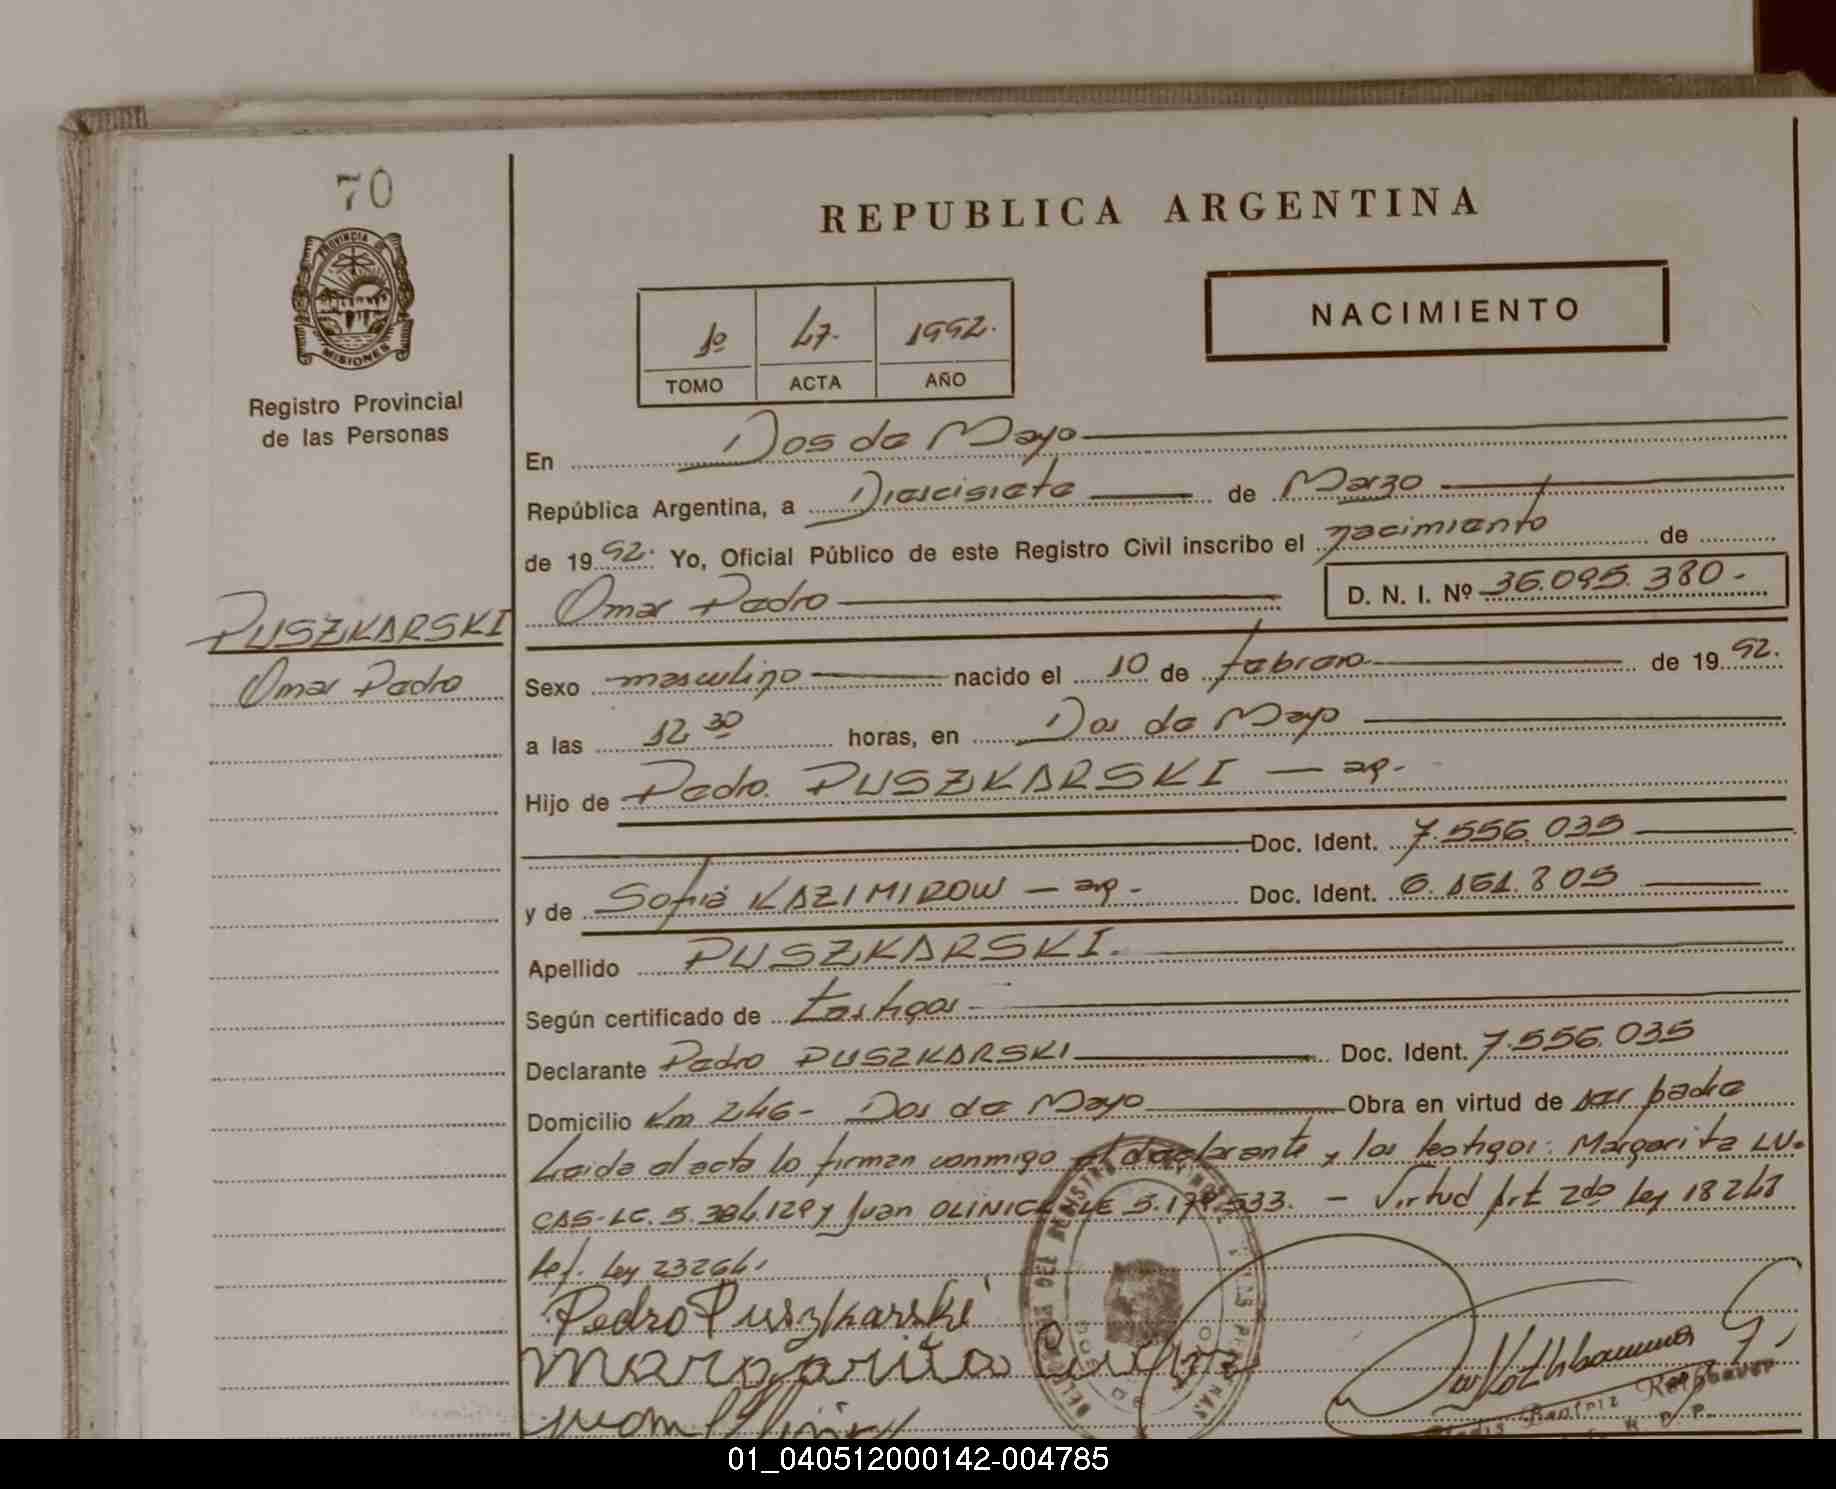 70
REPUBLICA ARGENTINA
PROVINCIA DE
MISIONES
Registro Provincial
de las Personas
1º 47. 1992.
TOMO ACTA AÑO
NACIMIENTO
En Dos de Mayo
República Argentina, a Diescisiete de Marzo
de 1992. Yo, Oficial Público de este Registro Civil inscribo el nacimiento de
Omar Pedro D. N. I. Nº 36.095.380-
PUSZKARSKI
Omar Pedro
Sexo masculino nacido el 10 de febrero de 1992.
a las 12 30 horas, en Dos de Mayo
Hijo de Pedro PUSZKARSKI — ar.
Doc. Ident. 7.556.035
y de Sofia KAZIMIROW — ar - Doc. Ident. 6.161.805
Apellido PUSZKARSKI.
Según certificado de testigos
Declarante Pedro PUSZKARSKI Doc. Ident. 7.556.035
Domicilio Km 246- Dos de Mayo Obra en virtud de ser padre
Leida el acta lo firman conmigo el declarante y los testigos: Margarita LU-
CAS-LC. 5.384.129 y Juan OLINICK LE 5.179.533. - Virtud Art 2do Ley 18248
Ref. Ley 23264.
Pedro Puszkarski
Margarita
Juan
01_040512000142-004785